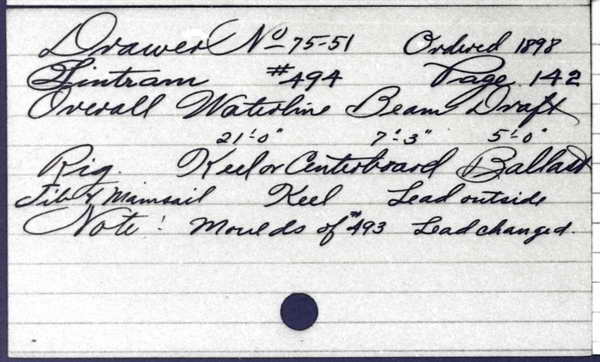 Drawer No 75-51 Ordered 1898
Sintram #494 Page. 142
Overall Waterline Beam Draft
21'-0" 7'-3" 5'-0"
Rig. Keel or Centerboard Ballast
Jib & Mainsail Keel Lead outside
Note: Moulds of #493 Lead changed.